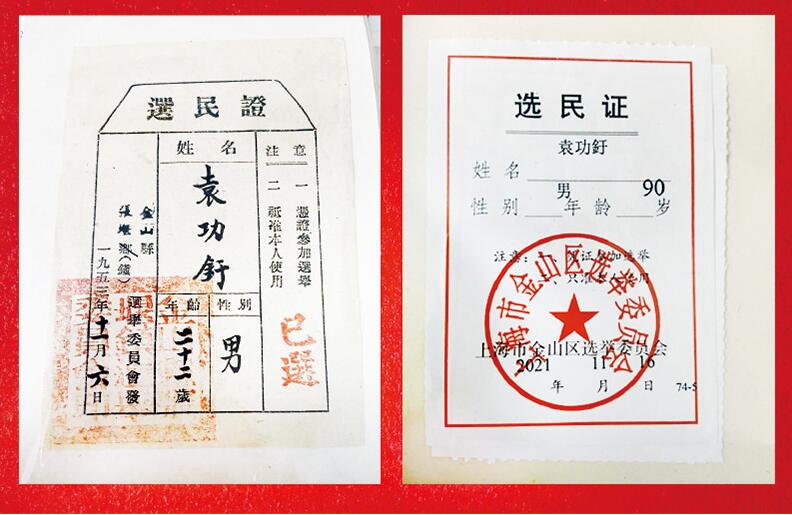 選民證
注意
一 憑證參加選舉
二 祇准本人使用
已選
姓名
袁功釪
性別
男
年齡
二十二歲
金山縣
張堰鄉(鎮)
選舉委員會發
一九五三年十一月六日
选民证
袁功釪
姓名
男 90
性别 年龄 岁
注意：一、凭证参加选举
二、只准本人使用
上海市金山区选举委员会
上海市金山区选举委员会
2021 11 16
年 月 日
74-5